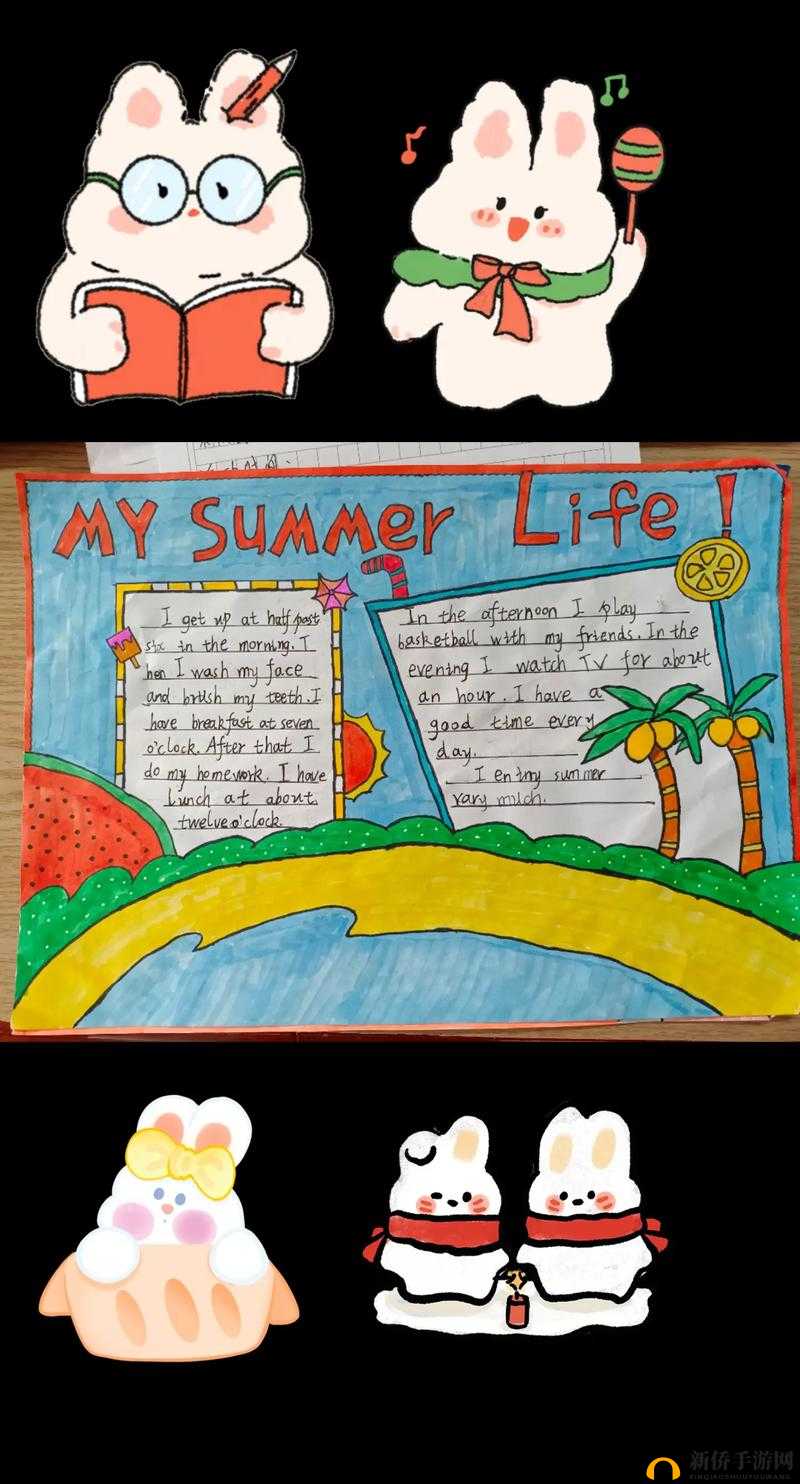 MY SUMMER Life!
I get up at half past
six in the morning. T
hen I wash my face
and brush my teeth. I
have breakfast at seven
o'clock. After that I
do my homework. I have
lunch at about
twelve o'clock.
In the afternoon I play
basketball with my friends. In the
evening I watch TV for about
an hour. I have a
good time every
day.
I enjny summer
vary much.
新侨手游网
XINQIAOSHOUYOUWANG